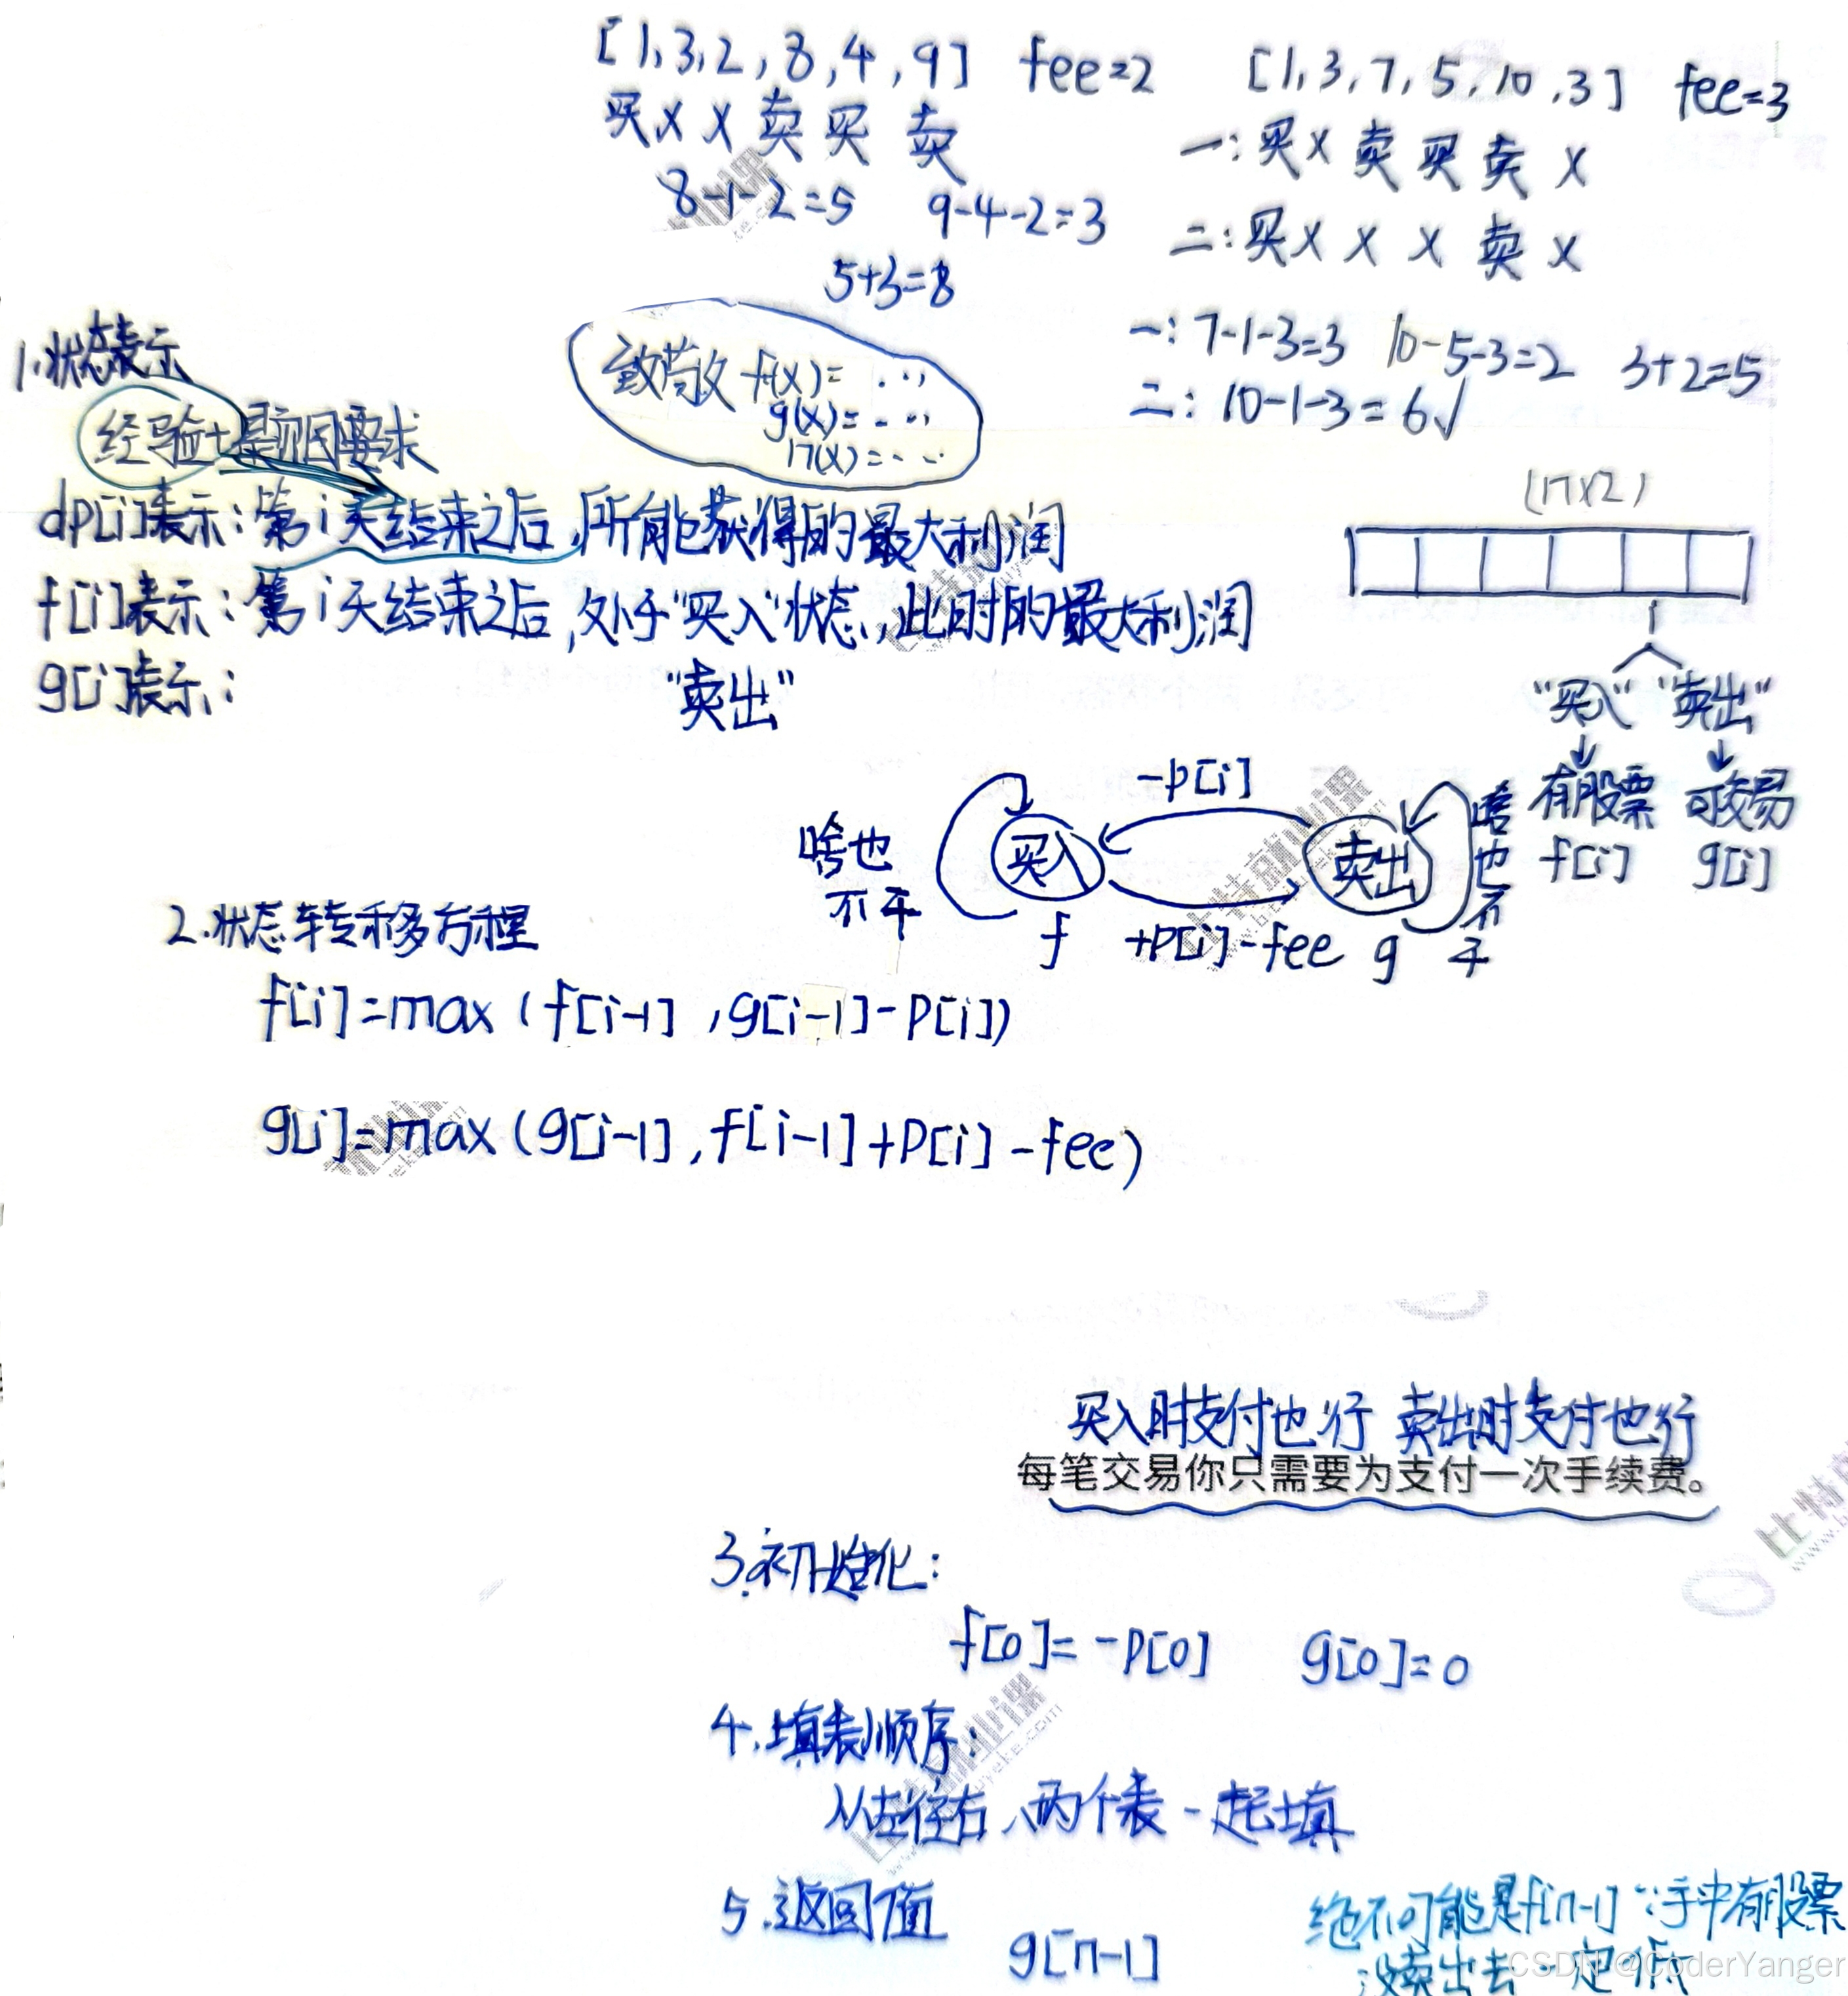 [1,3,2,8,4,9] fee=2
买 X X 卖 买 卖
8-1-2=5 9-4-2=3
5+3=8
[1,3,7,5,10,3] fee=3
一:买 X 卖 买 卖 X
二:买 X X X 卖 X
一:7-1-3=3 10-5-3=2 3+2=5
二:10-1-3=6√
1.状态表示
经验+题目要求
f(x)=...
g(x)=...
n(x)=...
dp[i]表示:第i天结束之后,所能获得的最大利润
f[i]表示:第i天结束之后,处于"买入"状态,此时的最大利润
g[i]表示: "卖出"
(n×2)
"买入" "卖出"
↓ ↓
有股票 可交易
f[i] g[i]
-p[i]
啥也不干
买入
卖出
啥也不干
f
+p[i]-fee
g
2.状态转移方程
f[i]=max(f[i-1],g[i-1]-p[i])
g[i]=max(g[i-1],f[i-1]+p[i]-fee)
买入时支付也行 卖出时支付也行
每笔交易你只需要为支付一次手续费。
3.初始化:
f[0]=-p[0] g[0]=0
4.填表顺序:
从左往右、两个表一起填
5.返回值
g[n-1]
绝不可能是f[n-1]∵手中有股票
没卖出去一定低
CSDN @CoderYanger